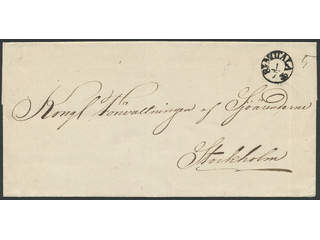 RAMDALA
1
Kongl Förvaltningen af Sjöärendena
Stockholm